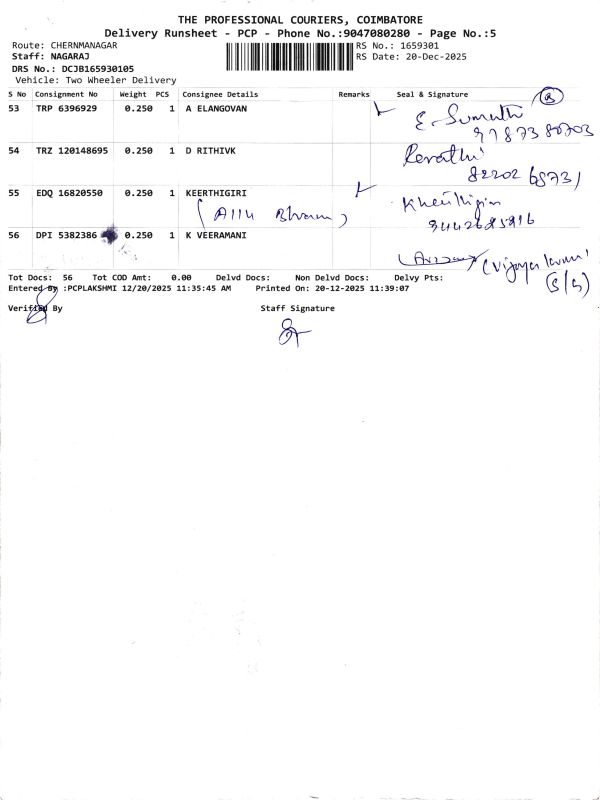 THE PROFESSIONAL COURIERS, COIMBATORE
Delivery Runsheet - PCP - Phone No.:9047080280 - Page No.:5
Route: CHERNMANAGAR RS No.: 1659301
Staff: NAGARAJ RS Date: 20-Dec-2025
DRS No.: DCJB165930105
Vehicle: Two Wheeler Delivery
S No Consignment No Weight PCS Consignee Details Remarks Seal & Signature
53 TRP 6396929 0.250 1 A ELANGOVAN
E. Sumathi
54 TRZ 120148695 0.250 1 D RITHIVK Revathi
82202 68731
55 EDQ 16820550 0.250 1 KEERTHIGIRI
56 DPI 5382386 0.250 1 K VEERAMANI
(S/S)
Tot Docs: 56 Tot COD Amt: 0.00 Delvd Docs: Non Delvd Docs: Delvy Pts:
Entered By :PCPLAKSHMI 12/20/2025 11:35:45 AM Printed On: 20-12-2025 11:39:07
Verified By Staff Signature